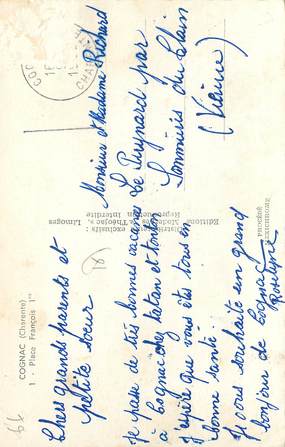 COGNAC (Charente)
1 - Place François 1er
Chers grands parents et
petite soeur
Je passe de très bonnes vacances
à Cognac chez tatan et tonton
J'espère que vous êtes tous en
bonne santé.
Je vous souhaite un grand
bonjour de Cognac
Roselyne
Editions Modernes "Théojac", Limoges
Reproduction Interdite
Distributeurs exclusifs :
Monsieur et Madame Richard
Le Puynard par
Sommières du Clain
(Vienne)